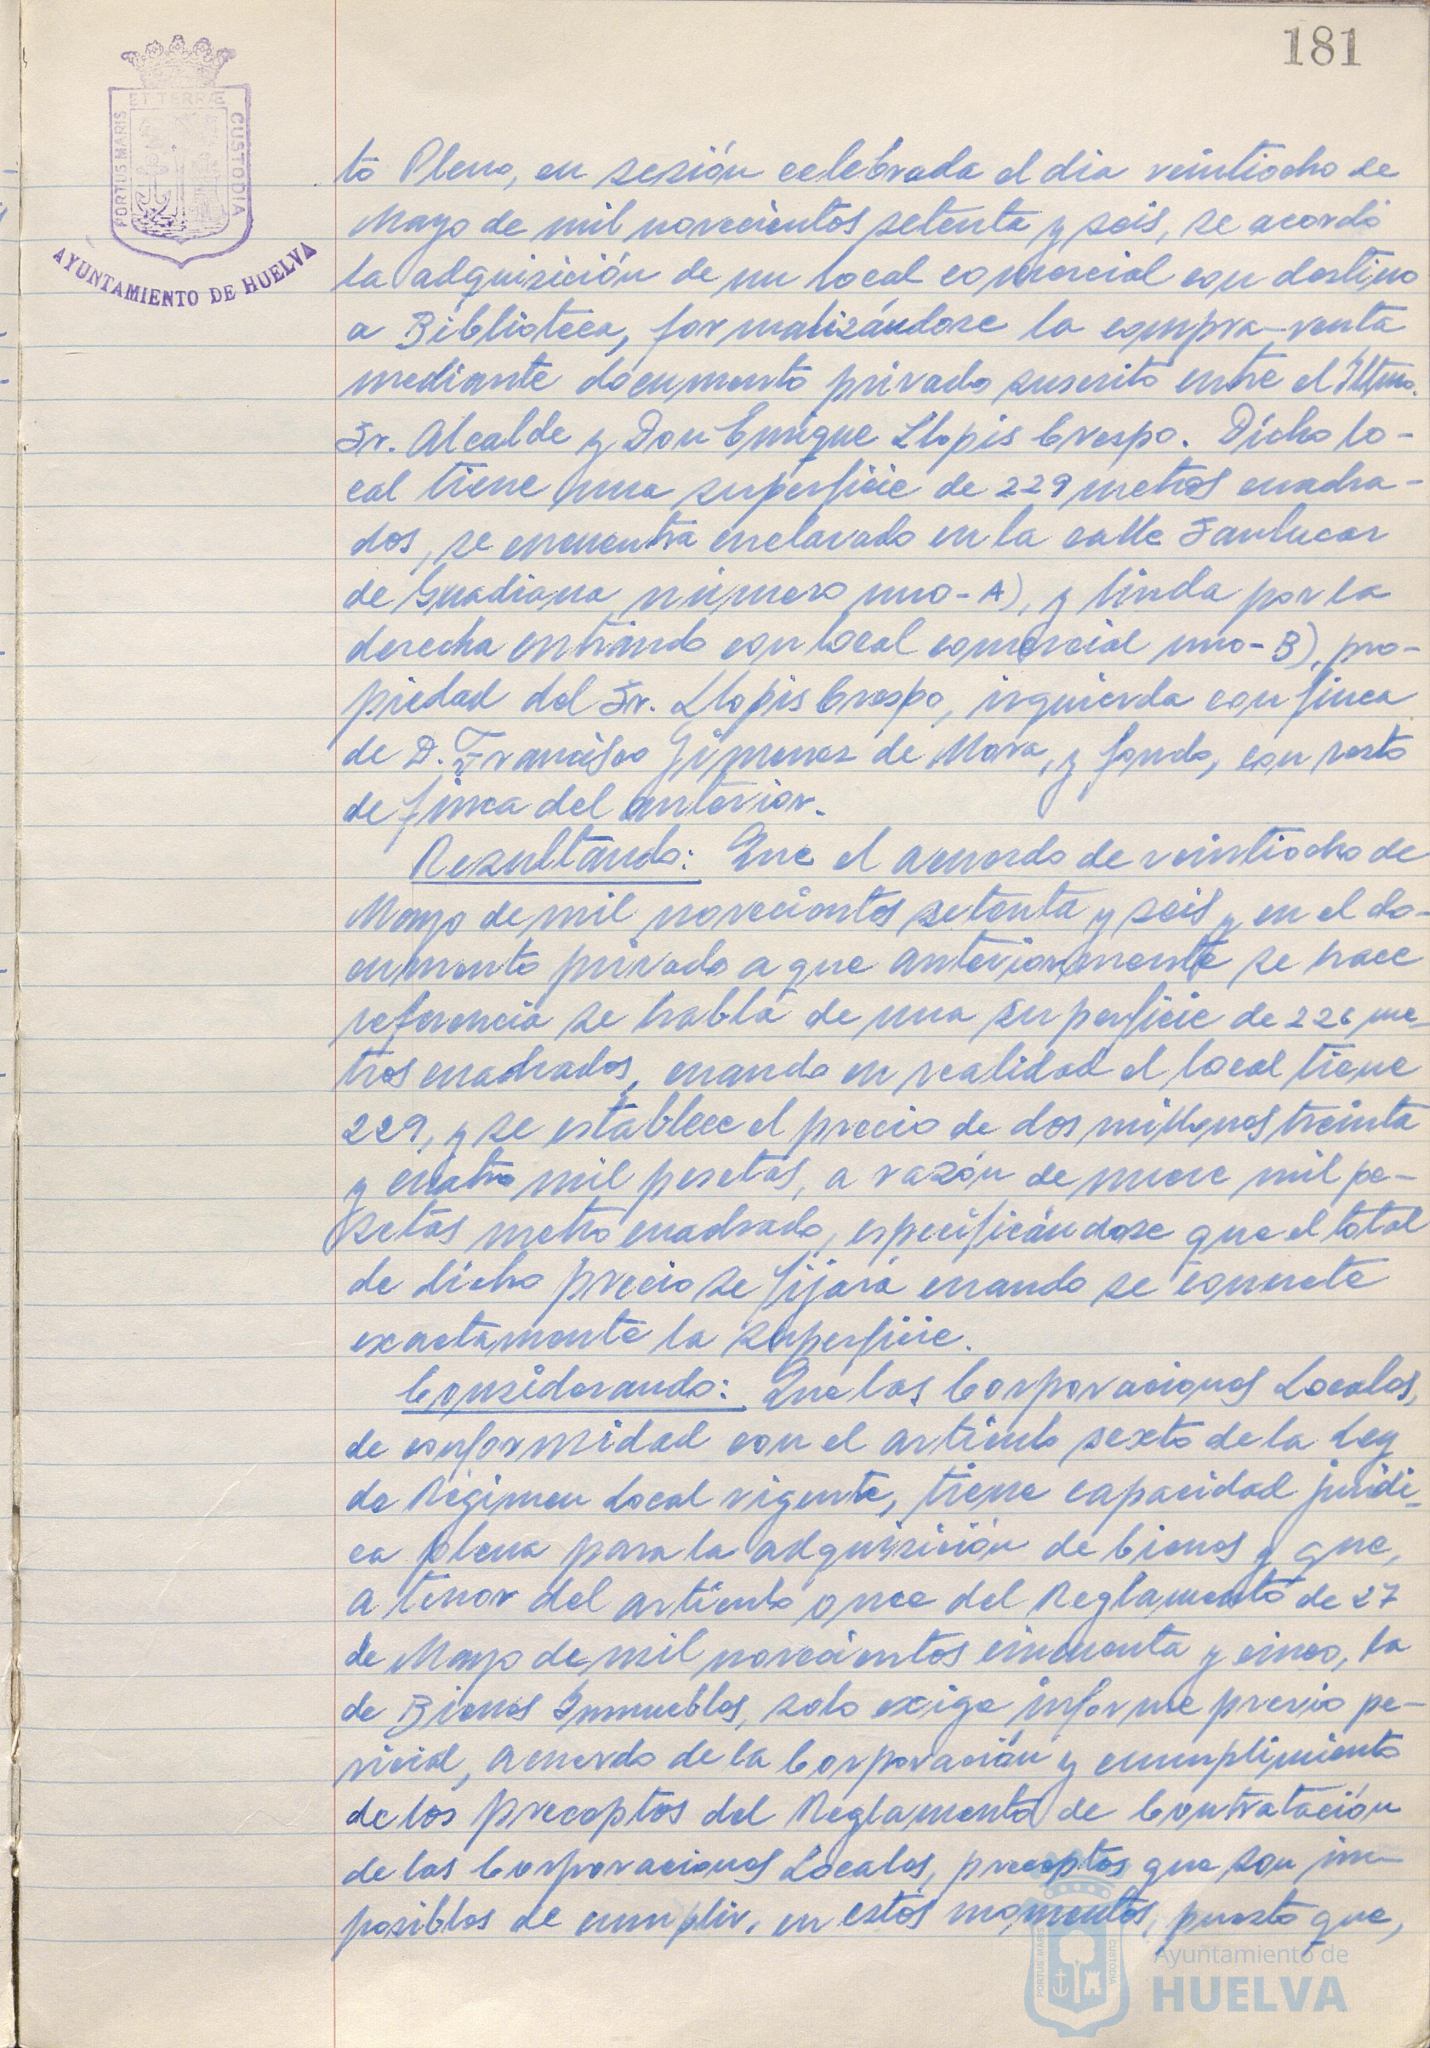 181
PORTUS MARIS ET TERRÆ CUSTODIA
AYUNTAMIENTO DE HUELVA
to Pleno, en sesión celebrada el dia veintiocho de
Mayo de mil novecientos setenta y seis, se acordó
la adquisición de un local comercial con destino
a Biblioteca, formalizándose la compra-venta
mediante documento privado suscrito entre el Iltmo.
Sr. Alcalde y Don Enrique Llopis Crespo. Dicho lo-
cal tiene una superficie de 229 metros cuadra-
dos, se encuentra enclavado en la calle Sanlucar
de Guadiana, número uno-A), y linda por la
derecha entrando con local comercial uno-B), pro-
piedad del Sr. Llopis Crespo, izquierda con finca
de D. Francisco Jimenez de Mora, y fondo, con resto
de finca del anterior.
Resultando: Que el acuerdo de veintiocho de
Mayo de mil novecientos setenta y seis y en el do-
cumento privado a que anteriormente se hace
referencia se habla de una superficie de 226 me-
tros cuadrados, cuando en realidad el local tiene
229, y se establece el precio de dos millones treinta
y cuatro mil pesetas, a razón de nueve mil pe-
setas metro cuadrado, especificándose que el total
de dicho precio se fijará cuando se concrete
exactamente la superficie.
Considerando: Que las Corporaciones Locales,
de conformidad con el artículo sexto de la Ley
de Régimen Local vigente, tiene capacidad jurídi-
ca plena para la adquisición de bienes y que,
a tenor del artículo once del Reglamento de 27
de Mayo de mil novecientos cincuenta y cinco, la
de Bienes Inmuebles, solo exige informe previo pe-
ricial, acuerdo de la Corporación y cumplimiento
de los preceptos del Reglamento de Contratación
de las Corporaciones Locales, preceptos que son im-
posibles de cumplir, en estos momentos, puesto que,
PORTUS MARIS CUSTODIA
Ayuntamiento de
HUELVA